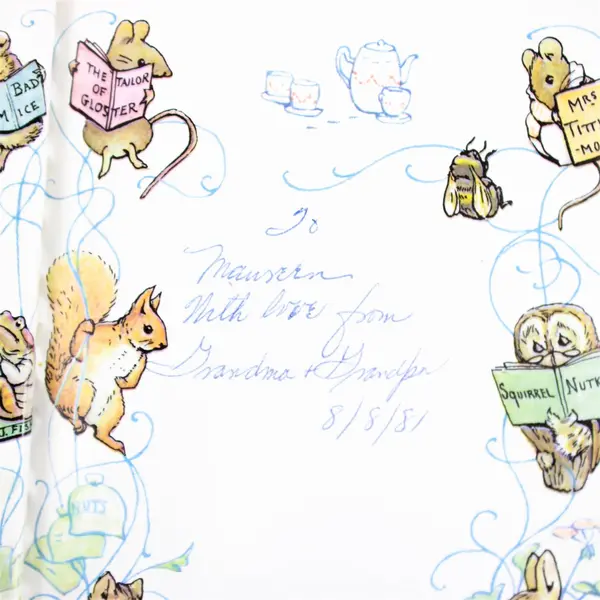 BAD
M ICE
THE TAILOR
OF
GLOSTER
MRS
TITTLE
-MO
To
Maureen
With love from
Grandma & Grandpa
8/8/81
SQUIRREL NUTK
J. FIS
NUTS